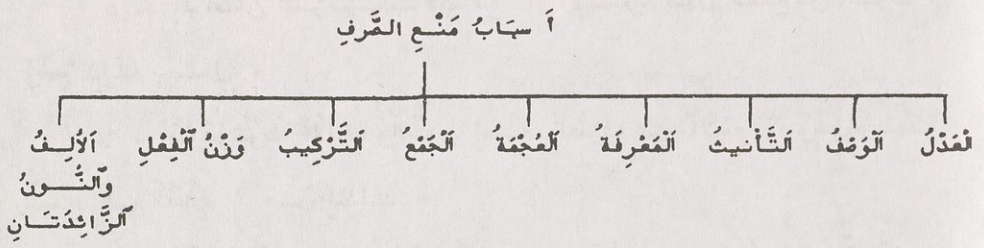 أَسبَابُ مَنْعِ الصَّرفِ
العَدْلُ اَلْوَصْفُ اَلتَّأْنيثُ اَلْمَعْرِفَةُ اَلْعُجْمَةُ اَلْجَمْعُ اَلتَّرْكِيبُ وَزْنُ ٱلْفِعْلِ اَلْأَلِفُ
وَٱلنُّونُ
ٱلزَّائِدَتَانِ